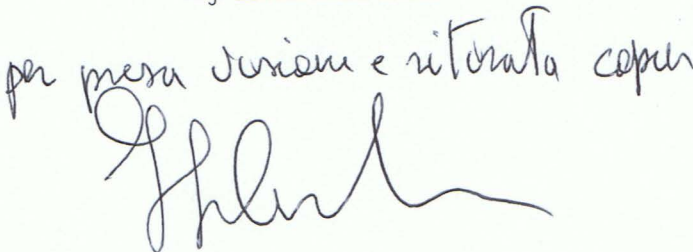 per presa visione e ritirata copia